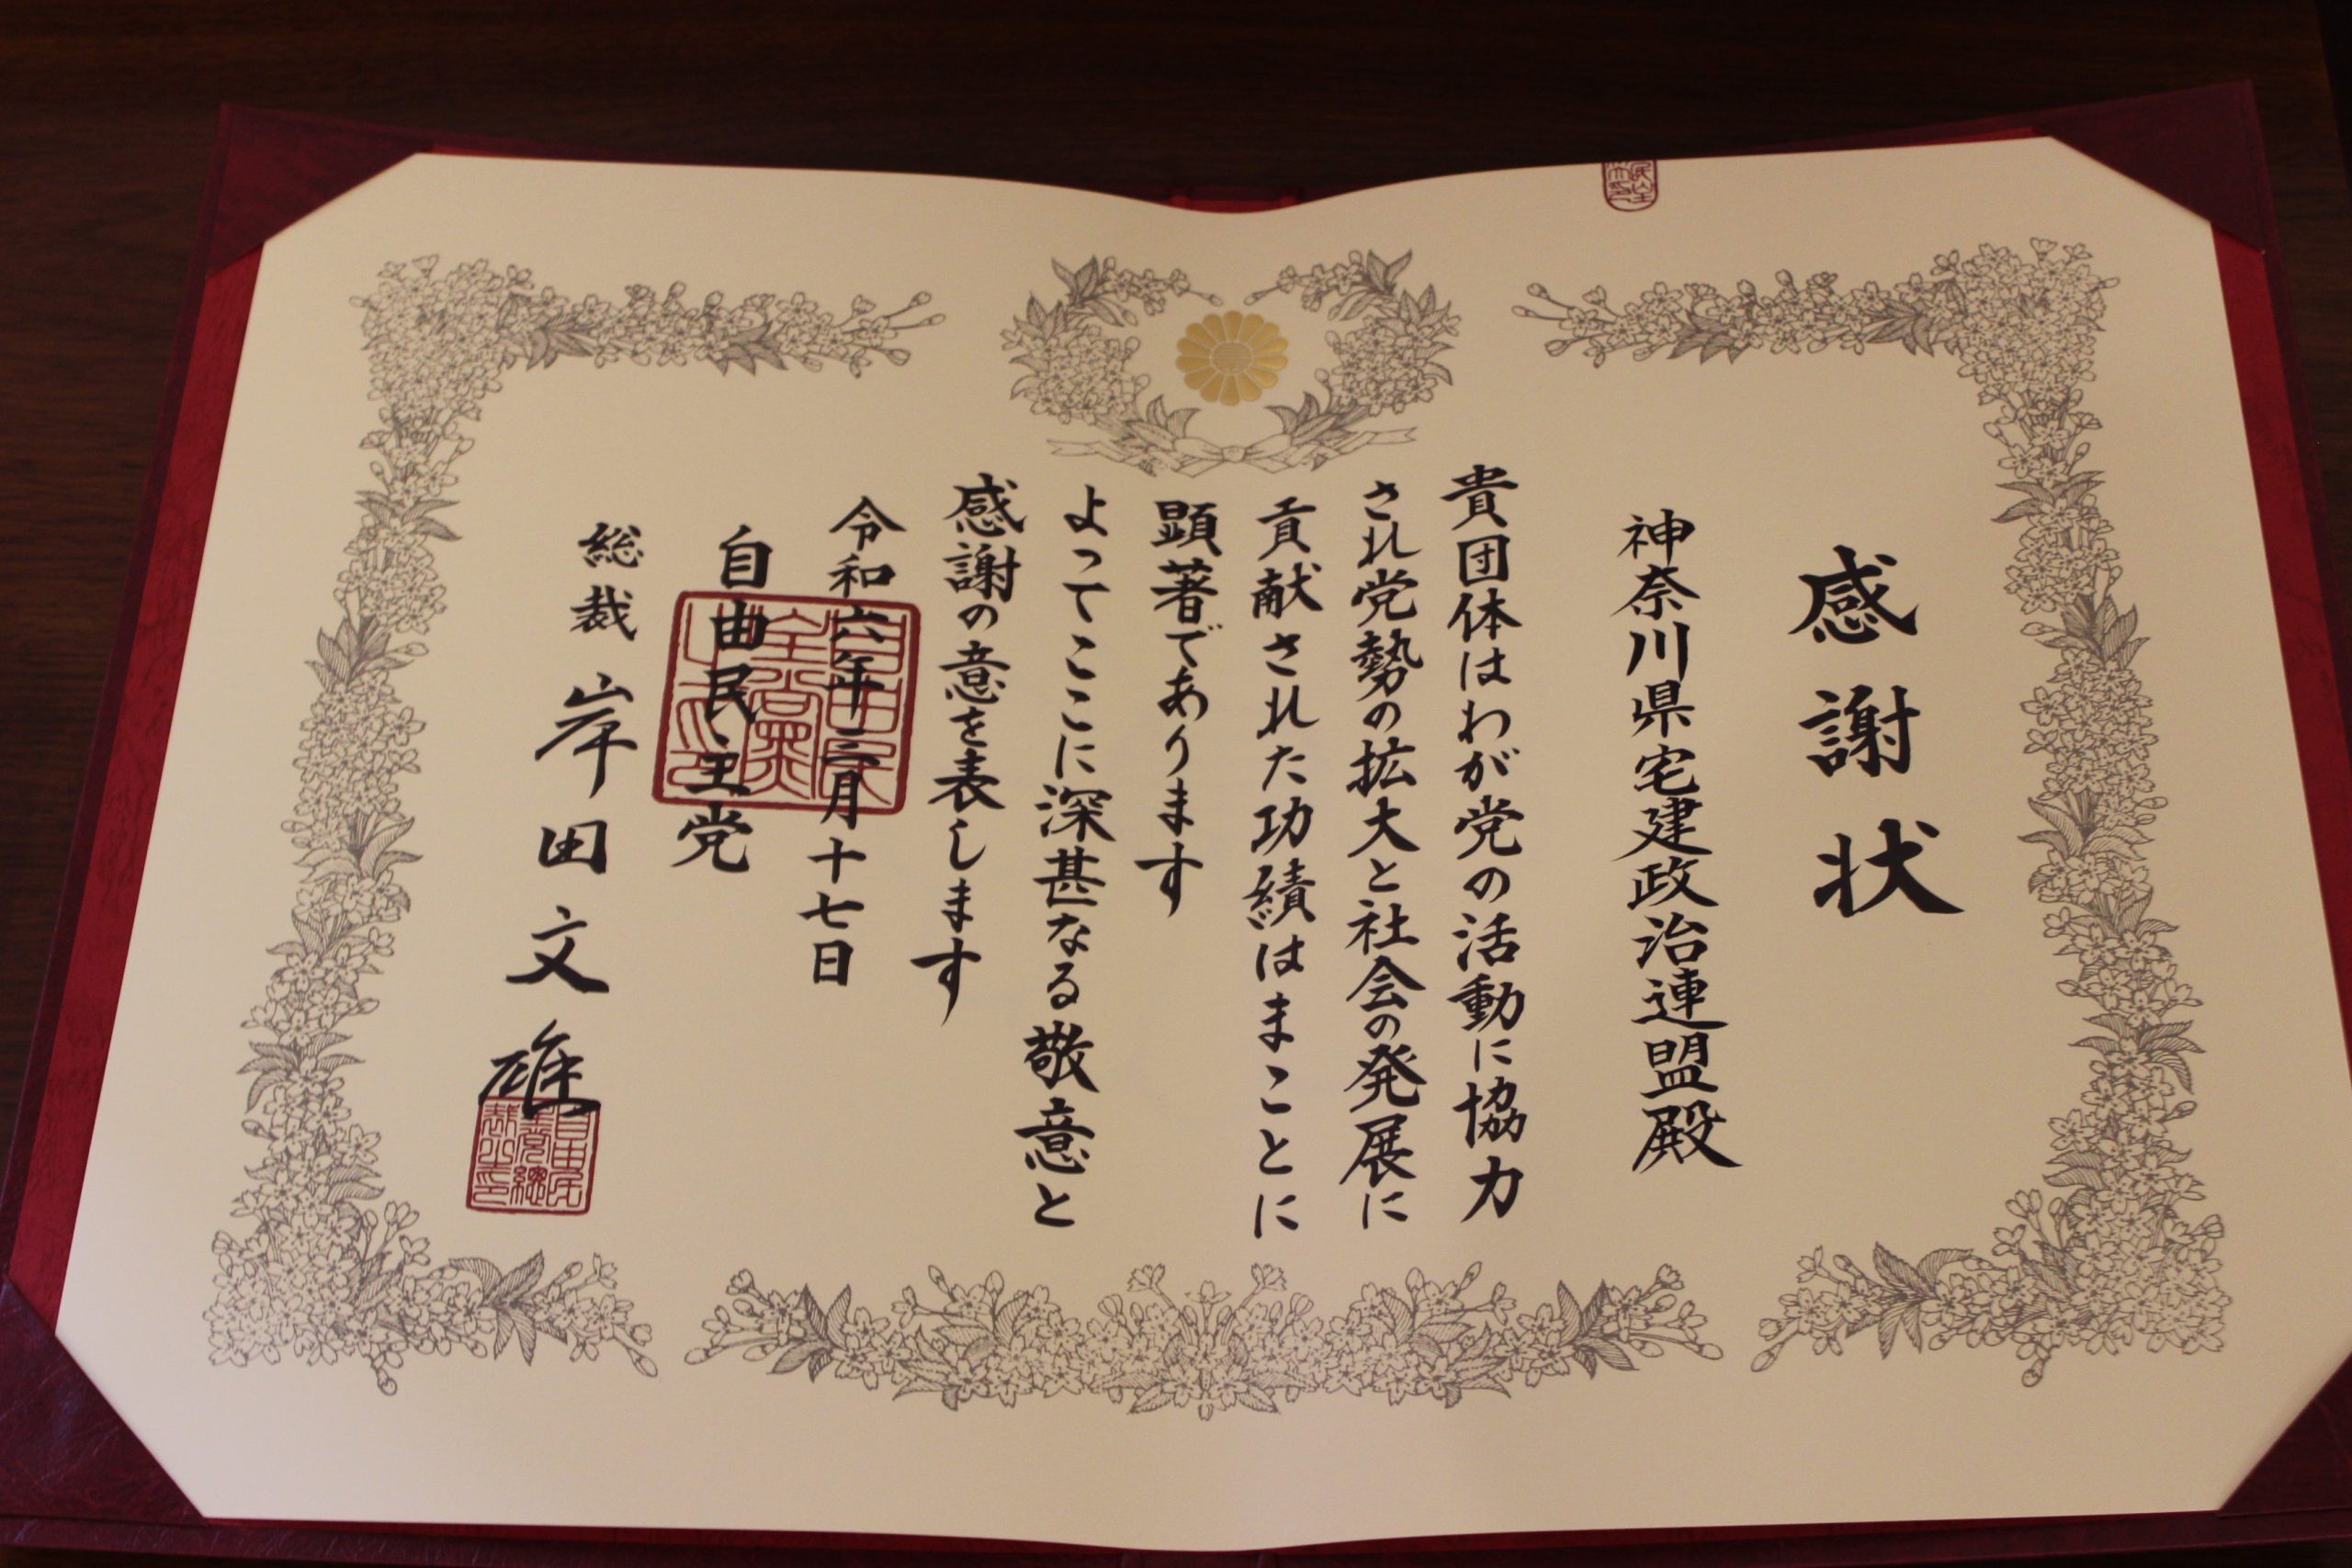 感謝状
神奈川県宅建政治連盟殿
貴団体はわが党の活動に協力
され党勢の拡大と社会の発展に
貢献された功績はまことに
顕著であります
よってここに深甚なる敬意と
感謝の意を表します
令和六年三月十七日
自由民主党
総裁 岸田文雄